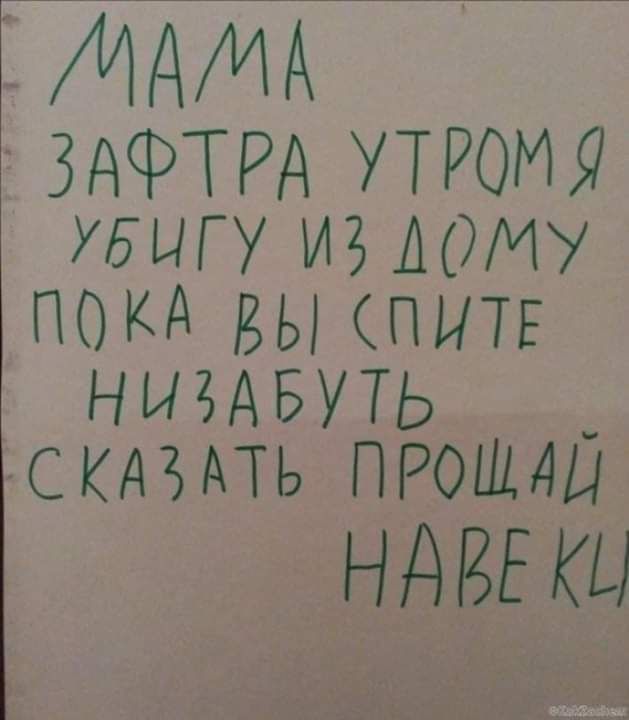 МАМА
ЗАФТРА УТРОМ Я
УБИГУ ИЗ ДОМУ
ПОКА ВЫ СПИТЕ
НИЗАБУТЬ
СКАЗАТЬ ПРОЩАЙ
НАВЕКИ